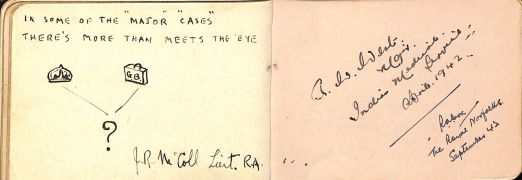 IN SOME OF THE "MAJOR" "CASES"
THERE'S MORE THAN MEETS THE EYE
GB
?
J.R. McColl Lieut. R.A.
Major
Indian Medical Service
April. 1942
The Royal Norfolks
September 43